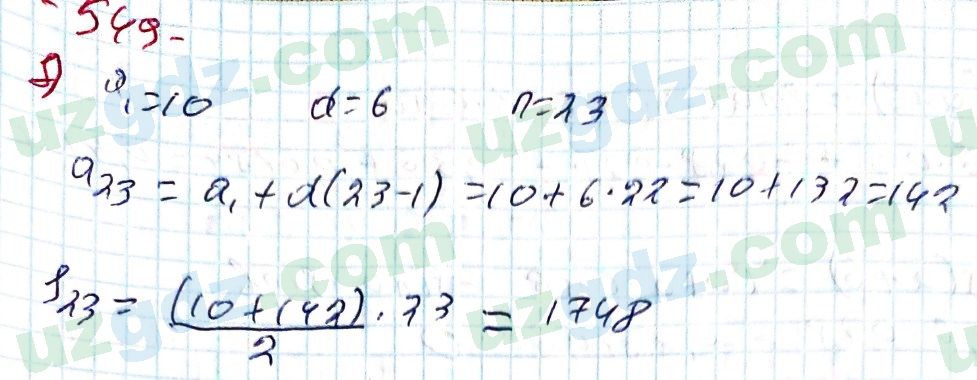 549-
1) a₁=10 d=6 n=23
a₂₃ = a₁ + d(23-1) = 10 + 6·22 = 10 + 132 = 142
S₂₃ = (10+142)/2 · 23 = 1748
uzgdz.com
uzgdz.com
uzgdz.com
uzgdz.com